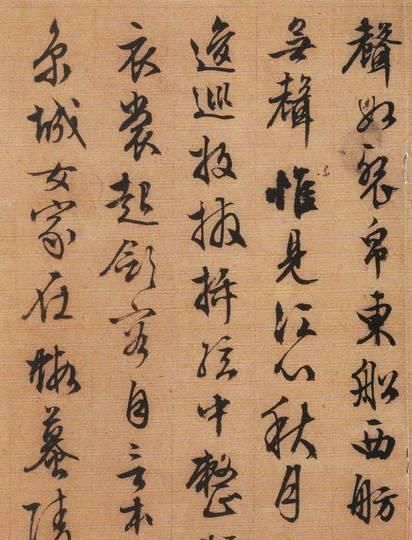 聲如裂帛東船西舫
無聲惟見江心秋月
逡巡撥插絃中整
衣裳起斂容自言本
京城女家在蝦蟇陵